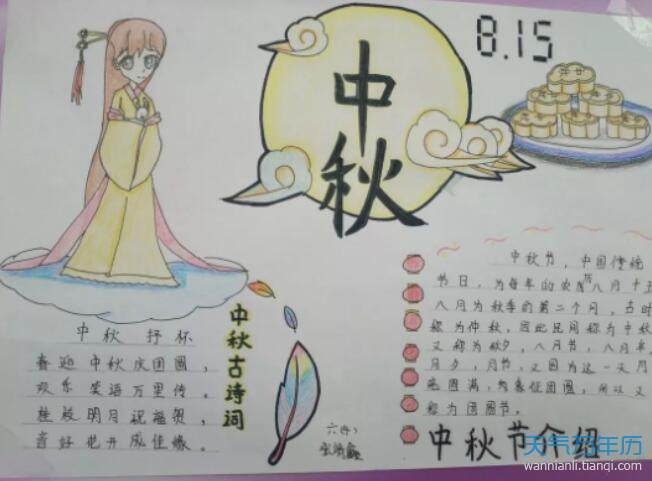 中秋
8.15
中秋 抒怀
喜迎中秋庆团圆，
欢乐笑语万里传。
桂殿明月祝福贺，
喜好花开成佳缘。
中秋古诗词
六(4)
中秋节，中国传统
节日，为每年的农历八月十五
八月为秋季的第二个月，古时
称为仲秋，因此民间称为中秋
又称为秋夕，八月节，八月半，
月夕，月节，又因为这一天月
亮圆满，象征团圆，所以又
称为团圆节。
中秋节介绍
天气万年历
wannianli.tianqi.com